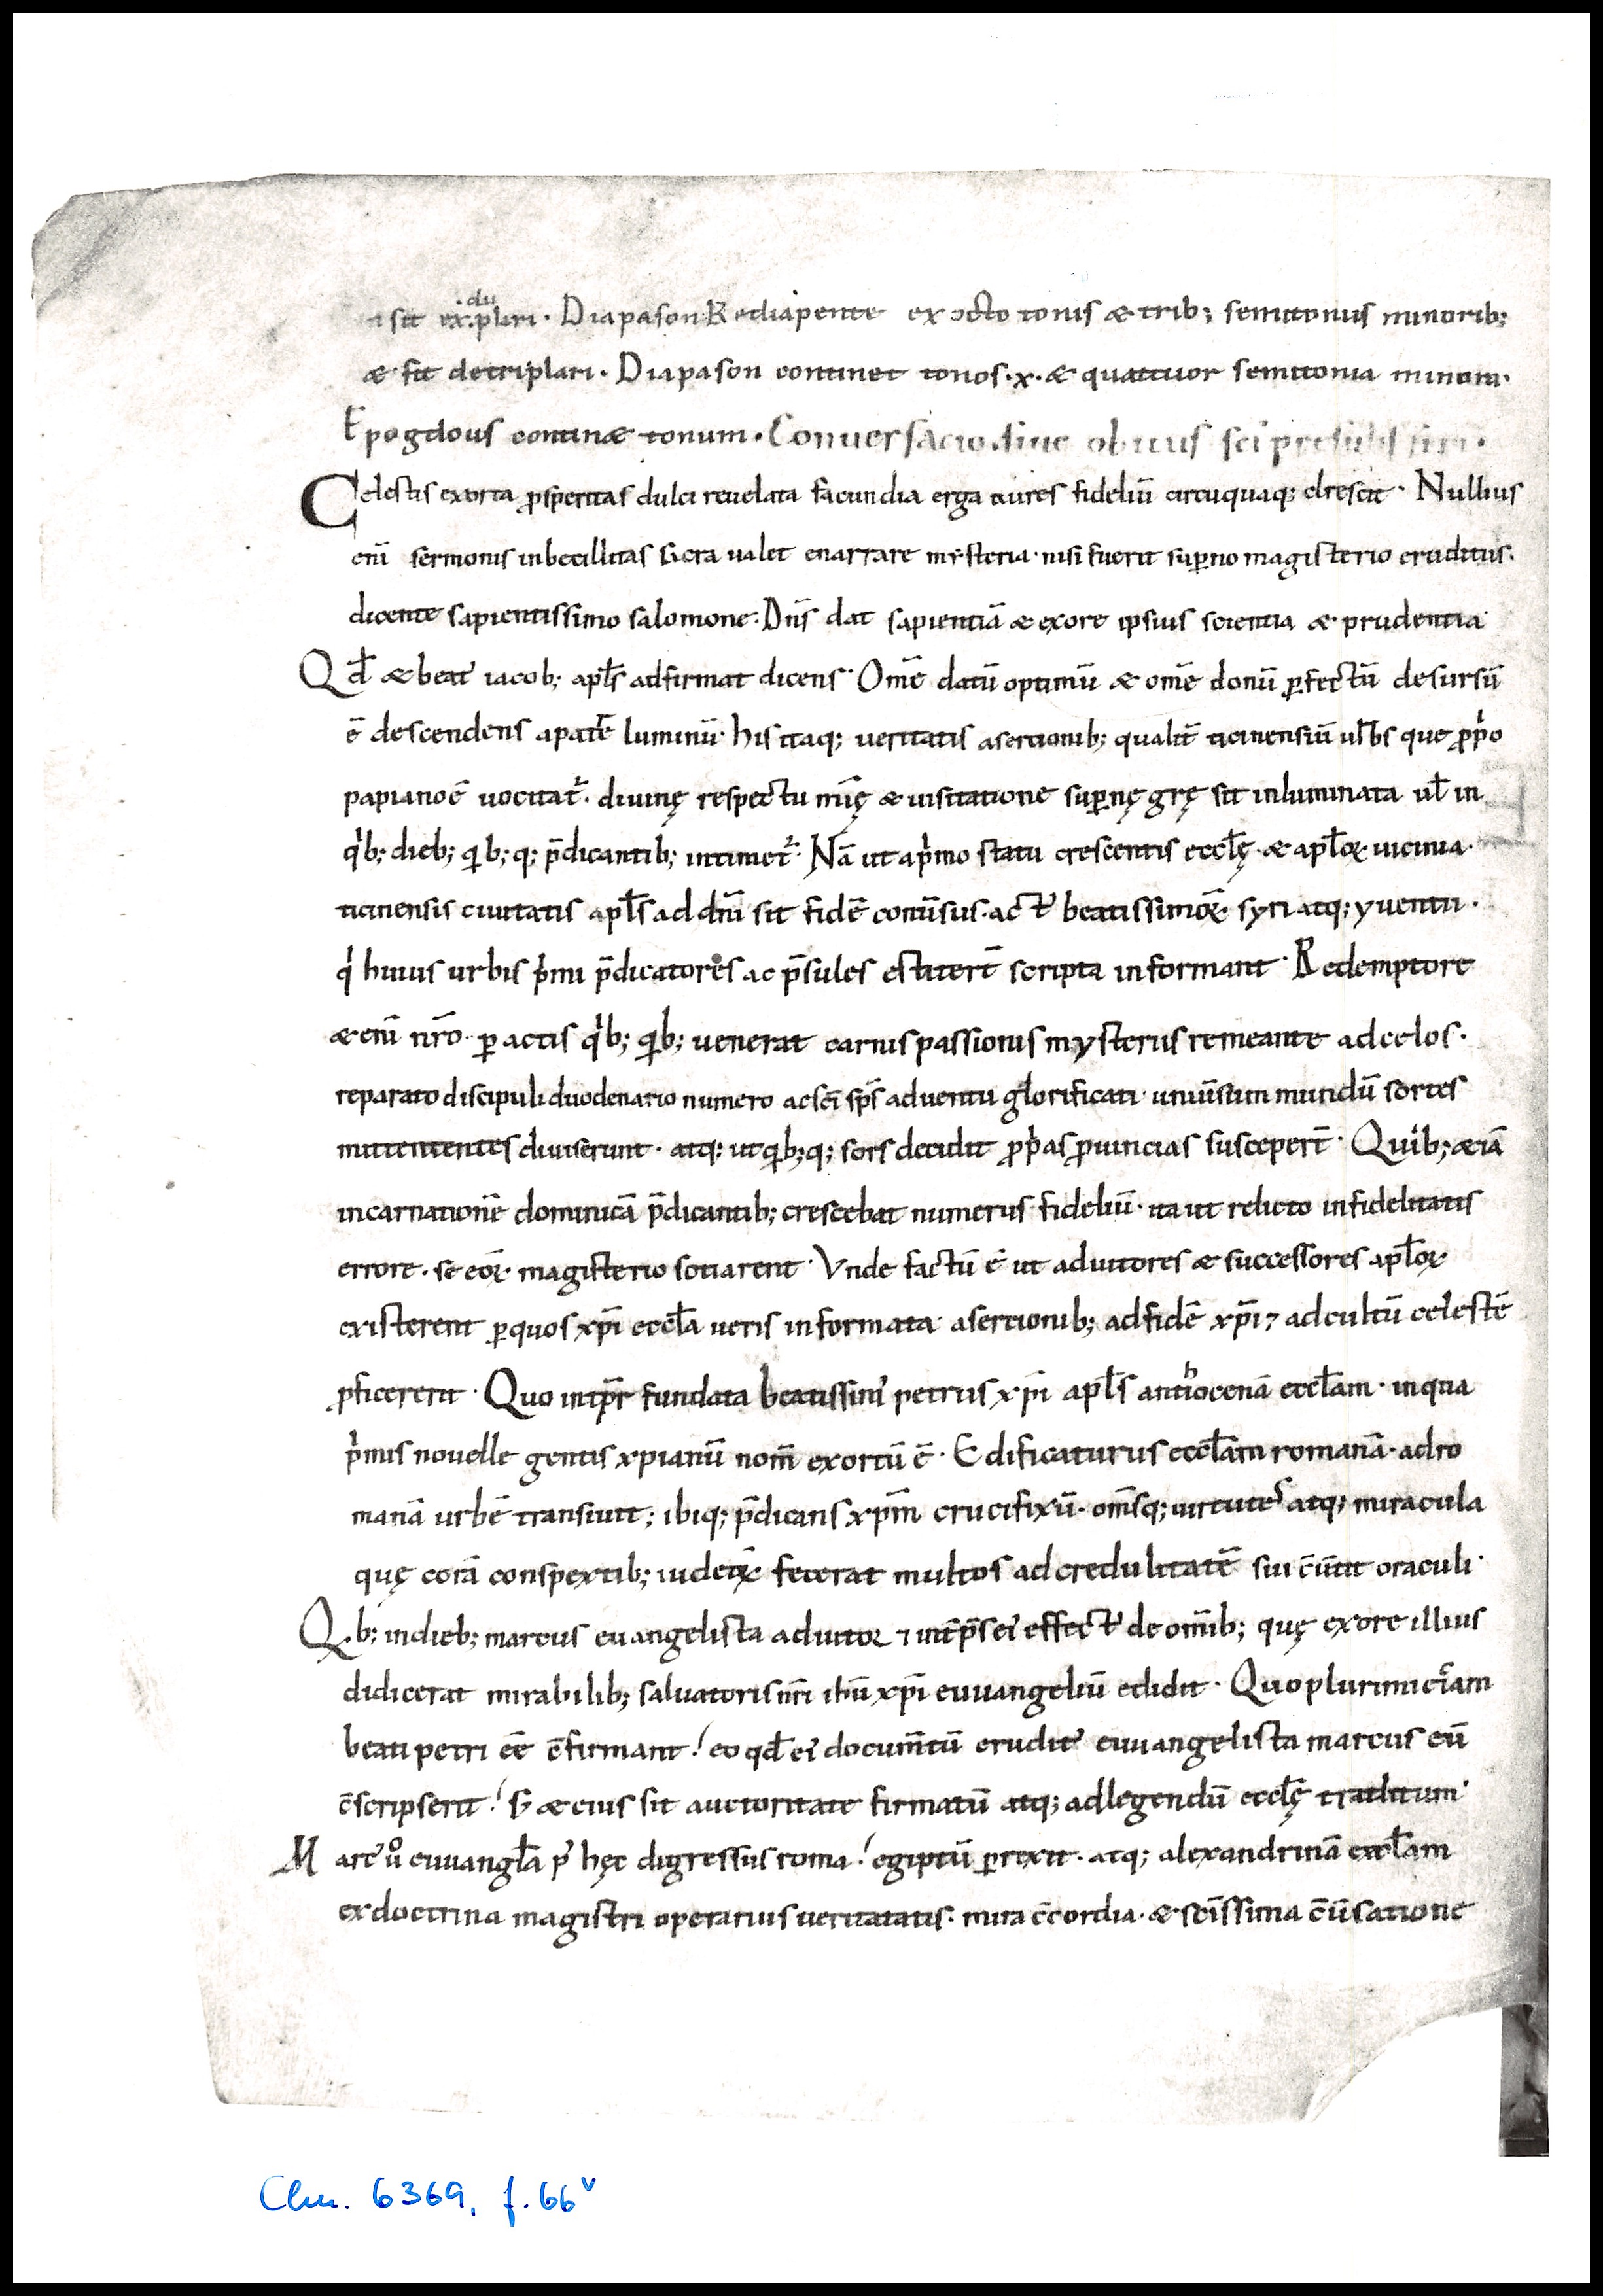 sit ex duplari · Diapason & ediapente ex octo tonis & trib; semitoniis minorib;
& fit de triplari · Diapason continet tonos · x · & quattuor semitonia minora ·
Epogdous contin& tonum · Conversacio siue obitus sci presulis siri ·
Celestis exorta ꝓsperitas dulci reuelata facundia erga aures fideliū circūquaq; clrescit · Nullius
eni̅ sermonis inbecillitas sacra ualet enarrare mysteria · nisi fuerit suꝑno magisterio eruditus ·
dicente sapientissimo salomone · Dn̅s dat sapientiā & exore ipsius scientia & prudentia
Qđ & beat᾽ iacob; apl̅s adfirmat dicens · Om̅e datū optimū & om̅e donū ꝑfectū desursū
ē descendens apat̅e luminū · his itaq; ueritatis asertionib; qualit̅ ticinensiū urbs que ꝓpͥo
papia no̅e uocitat᷑ · diuinę respectu mi̅ę & uisitatione suꝑnę gr̅ę sit inluminata ul̅ in
qͥb; dieb; qͥb; q; p̅dicantib; intimet᷑ · Nā ut apͥmo statu crescentis eccl̅ę · & apl̅oꝝ uicinia ·
ticinensis ciuitatis apl̅s ad dn̅i sit fidē conu̅sus · act᾽ beatissimoꝝ · syri atq; yuentii ·
qͥ huius urbis pͥmi p̅dicatores ac p̅sules estiter̅t scripta informant · Redemptore
& eni̅ nr̅o · ꝑactis qͥb; ꝓqͥb; uenerat carnis passionis mysteriis remeante adcelos ·
reparato discipuli duodenario numero acsc̅i sp̅s aduentu glorificati · uniu̅sun mundū sortes
mittententes diuiserunt · atq; ut qͥb; q; sors decidit ꝓpͥas ꝓuincias susceper̅t · Quib; &iā
incarnationē dominicā p̅dicantib; crescebat numerus fideliū · ita ut relicto infidelitatis
errore · se eoꝝ magisterio sotiarent · Vnde factū ē ut adiutores & successores apl̅oꝝ
existerent ꝑquos xp̅i eccl̅a ueris informata asertionib; adfidē xp̅i ⁊ adcultū celestē
ꝓficererit · Quo fundata beatissim᾽ petrus xp̅i apl̅s antiͪocenā eccl̅am · inqua
pͥmis nouelle gentis xpianū nom̅ exortū ē · Edificaturus eccl̅am romanā · adro
manā urbē transiuit; ibiq; p̅dicans xp̅m crucifixū · om̅sq; uirtutes atq; miracula
quę corā conspextib; iudeoꝝ fecerat multos adcredulitatē sui c̅u̅tit oraculi ·
Qͥb; indieb; marcus euangelista adiutor ⁊ int̅p̅s ei᾽ effect᾽ de om̅ib; quę exore illius
didicerat mirabilib; saluatoris nr̅i ih̅u xp̅i euuangeliū edidit · Quo plurimi etiam
beati petri ee̅ c̅firmant! eo qđ ei᾽ docum̅tū erudit᾽ euuangelista marcus eū
c̅scripserit! s; & eius sit auctoritate firmatū atq; adlegendū eccl̅ę traditum᾽
Marc᾽ ů euuangl̅a p᾽ hęc digressus roma! egiptū ꝑrexit · atq; alexandrinā eccl̅am
exdoctrina magistri operarius ueritatatis · mira c̅cordia · & sc̅issima c̅u̅satione
Clm. 6369, f. 66v